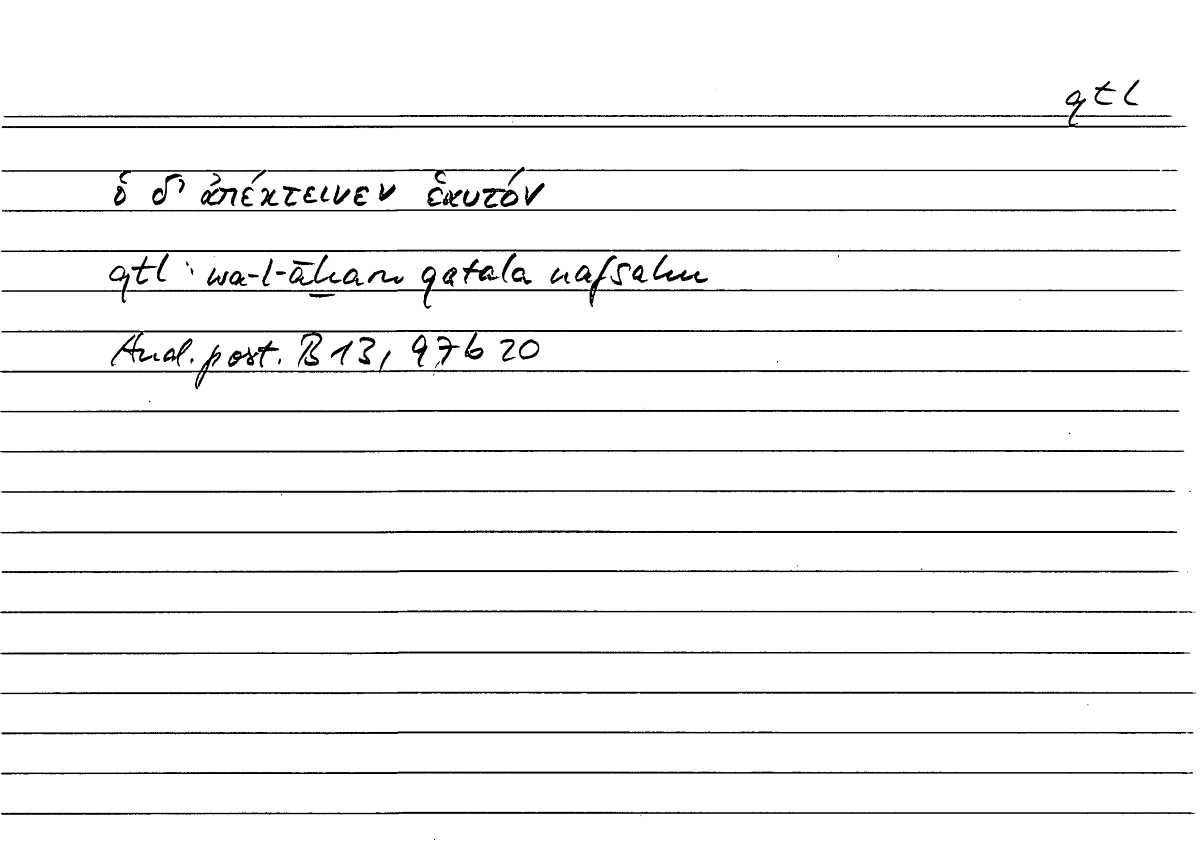 qtl
ὁ δ' ἀπέκτεινεν ἑαυτόν
qtl : wa-l-āḫaru qatala nafsahu
Anal. post. B 13, 97b 20